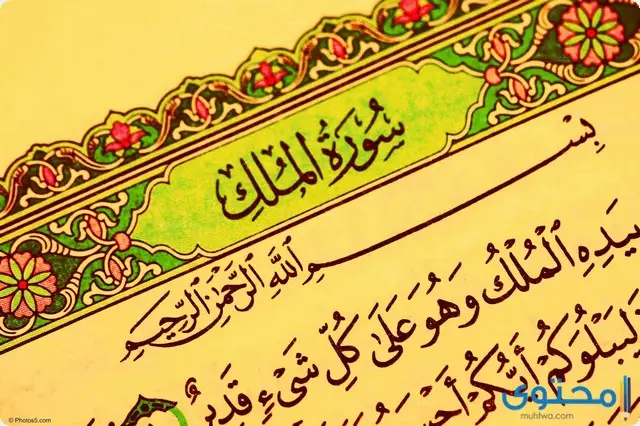 سُورَةُ المُلْكِ
بِسْمِ اللَّهِ الرَّحْمَٰنِ الرَّحِيمِ
بِيَدِهِ الْمُلْكُ وَهُوَ عَلَىٰ كُلِّ شَيْءٍ قَدِيرٌ
لِيَبْلُوَكُمْ أَيُّكُمْ
محتوى
muhtwa.com
© Photos5.com